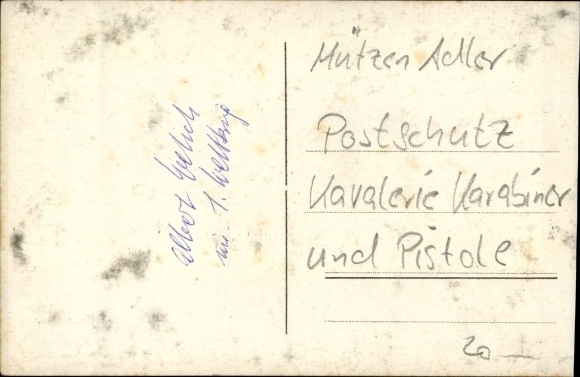 Albert
im 1. Weltkrieg
Mützen Adler
Postschutz
Kavalerie Karabiner
und Pistole
20 —